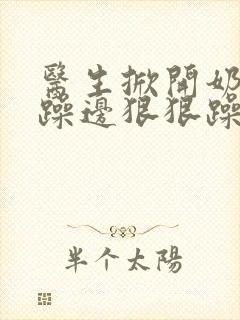 醫生掀開奶
躁邊狠狠躁
半个太陽